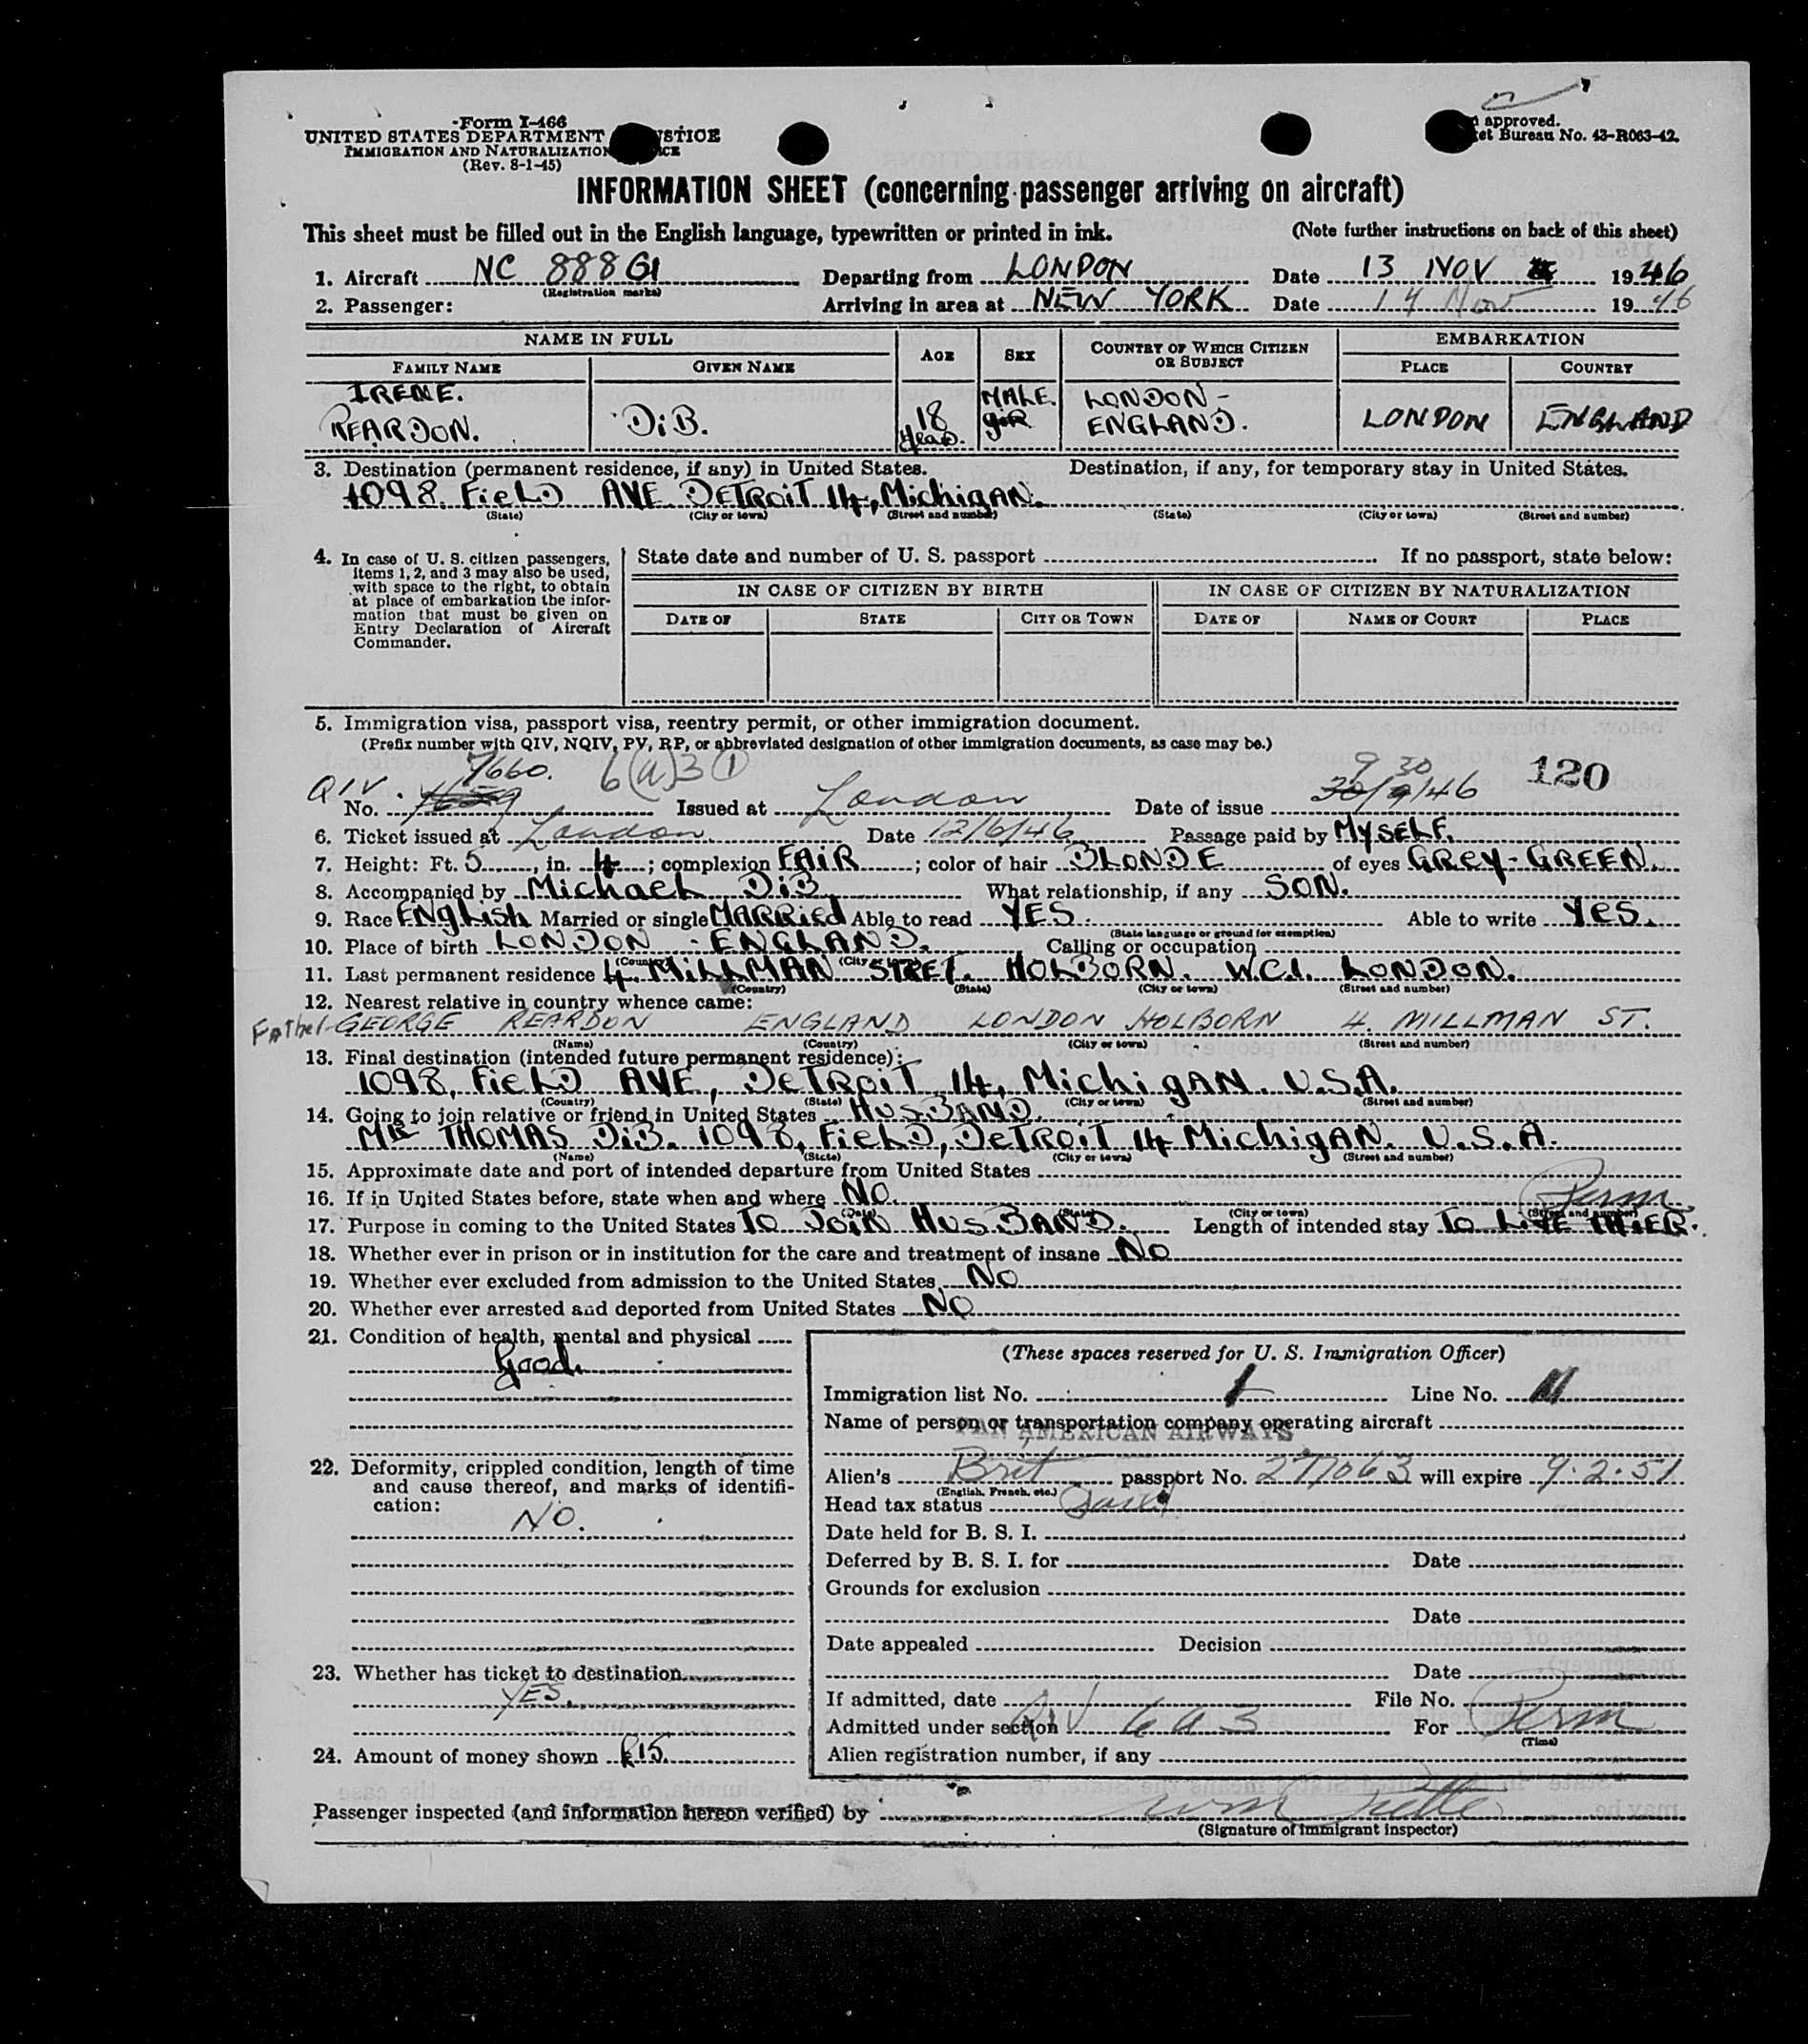 Form I-466
UNITED STATES DEPARTMENT
IMMIGRATION AND NATURALIZATION
(Rev. 8-1-45)
approved.
Bureau No. 43-R063-42.
INFORMATION SHEET (concerning passenger arriving on aircraft)
This sheet must be filled out in the English language, typewritten or printed in ink. (Note further instructions on back of this sheet)
1. Aircraft NC 888 Departing from LONDON Date 13 NOV 1946
(Registration marks)
2. Passenger: Arriving in area at NEW YORK Date 14 Nov 1946
NAME IN FULL AGE SEX COUNTRY OF WHICH CITIZEN OR SUBJECT EMBARKATION
FAMILY NAME GIVEN NAME PLACE COUNTRY
IRENE. MALE. LONDON -
REARDON. DiB. 18 years. ENGLAND. LONDON ENGLAND
3. Destination (permanent residence, if any) in United States. Destination, if any, for temporary stay in United States.
1098. FieLD AVE DETROiT 14, MichigAN.
(State) (City or town) (Street and number) (State) (City or town) (Street and number)
4. In case of U. S. citizen passengers, items 1, 2, and 3 may also be used, with space to the right, to obtain at place of embarkation the information that must be given on Entry Declaration of Aircraft Commander.
State date and number of U. S. passport If no passport, state below:
IN CASE OF CITIZEN BY BIRTH IN CASE OF CITIZEN BY NATURALIZATION
DATE OF STATE CITY OR TOWN DATE OF NAME OF COURT PLACE
5. Immigration visa, passport visa, reentry permit, or other immigration document.
(Prefix number with QIV, NQIV, PV, RP, or abbreviated designation of other immigration documents, as case may be.)
QIV. 7660. 6(a)3 ① 9 30 120
No. Issued at London Date of issue 30/9/46
6. Ticket issued at London Date 12/6/46 Passage paid by MYSELF.
7. Height: Ft. 5, in. 4; complexion FAIR; color of hair BLONDE of eyes GREY-GREEN.
8. Accompanied by MichaeL DiB What relationship, if any SON.
9. Race ENgLish Married or single MARRied Able to read YES. Able to write YeS.
(State language or ground for exemption)
10. Place of birth LONDON - ENGLAND. Calling or occupation
(Country) (City or town)
11. Last permanent residence 4. MILLMAN STRET. HOLBORN. W.C.1. LONDON.
(Country) (State) (City or town) (Street and number)
12. Nearest relative in country whence came:
Father GEORGE REARDON ENGLAND LONDON HOLBORN 4. MILLMAN ST.
(Name) (Country) (City or town) (Street and number)
13. Final destination (intended future permanent residence):
1098, FieLD AVE, DeTROiT 14, MichigAN. U.S.A.
(Country) (State) (City or town) (Street and number)
14. Going to join relative or friend in United States HUSBAND.
MR THOMAS DiB. 1098, FieLD, DeTROiT 14 MichigAN. U.S.A.
(Name) (State) (City or town) (Street and number)
15. Approximate date and port of intended departure from United States
16. If in United States before, state when and where NO. Perm
(Date) (State) (City or town) (Street and number)
17. Purpose in coming to the United States TO JOIN HUSBAND. Length of intended stay TO LIVE THIER.
18. Whether ever in prison or in institution for the care and treatment of insane NO
19. Whether ever excluded from admission to the United States NO
20. Whether ever arrested and deported from United States NO
21. Condition of health, mental and physical
Good.
22. Deformity, crippled condition, length of time and cause thereof, and marks of identification:
NO.
23. Whether has ticket to destination
YES.
24. Amount of money shown £15.
(These spaces reserved for U. S. Immigration Officer)
Immigration list No. 1 Line No.
Name of person or transportation company operating aircraft
PAN AMERICAN AIRWAYS
Alien's Brit passport No. 277063 will expire 9.2.51
(English, French, etc.)
Head tax status
Date held for B. S. I.
Deferred by B. S. I. for Date
Grounds for exclusion
Date
Date appealed Decision
Date
If admitted, date File No.
Admitted under section QIV 6a3 For Perm
(Time)
Alien registration number, if any
Passenger inspected (and information hereon verified) by
(Signature of immigrant inspector)